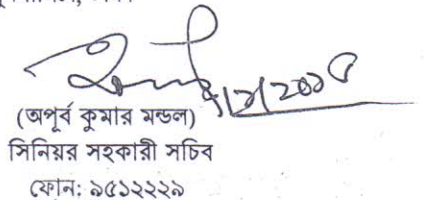 (অপূর্ব কুমার মন্ডল)
সিনিয়র সহকারী সচিব
ফোন: ৯৫১২২২৯